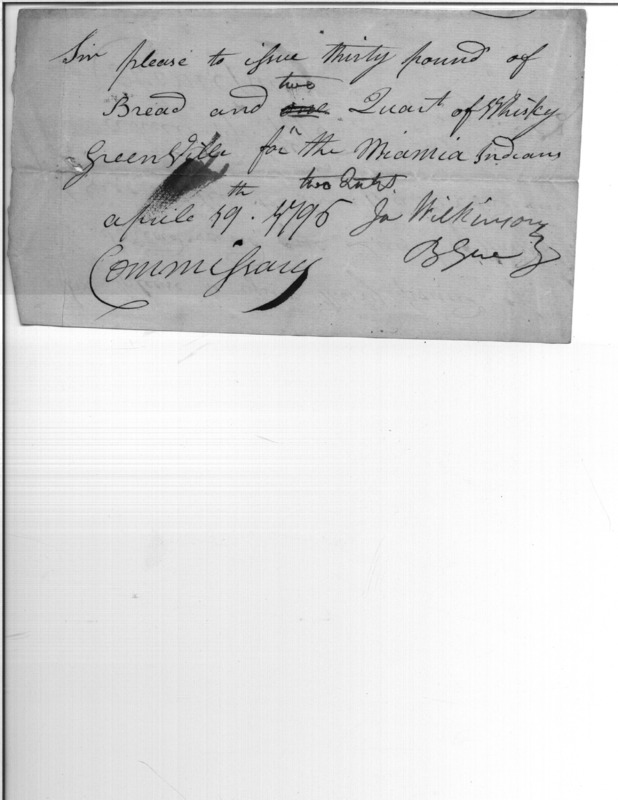 Sir please to issue thirty pound of
two
Bread and one Quart of Whisky
GreenVille for the Miamia Indians
two Qutts.
aprile 19th. 1796 Ja Wilkinson
Commissary B Gen